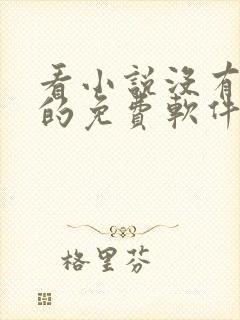 看小說沒有
的免費軟件
格里芬